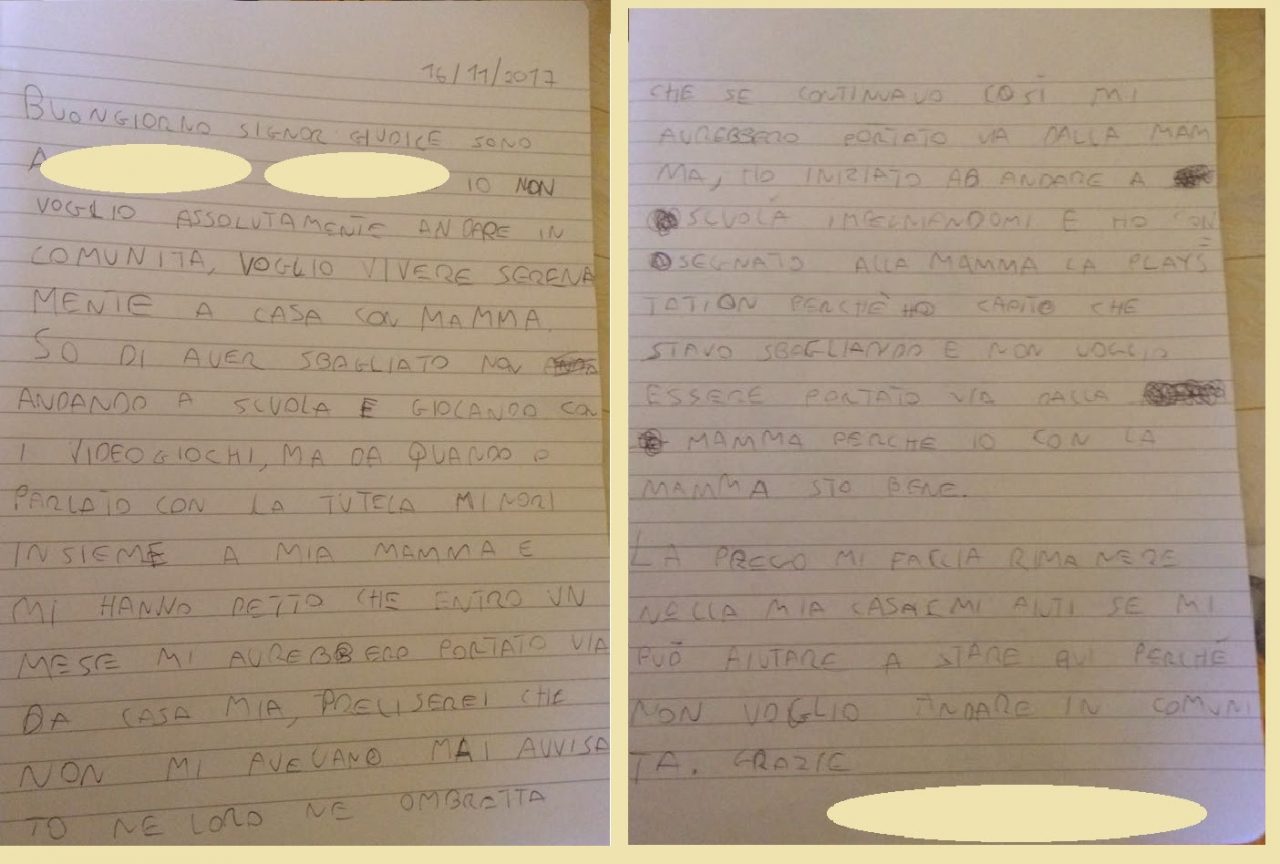 16/11/2017
BUONGIORNO SIGNOR GIUDICE SONO
A
IO NON
VOGLIO ASSOLUTAMENTE ANDARE IN
COMUNITA, VOGLIO VIVERE SERENA
MENTE A CASA CON MAMMA.
SO DI AVER SBAGLIATO NON
ANDANDO A SCUOLA E GIOCANDO CON
I VIDEOGIOCHI, MA DA QUANDO O
PARLATO CON LA TUTELA MINORI
INSIEME A MIA MAMMA E
MI HANNO DETTO CHE ENTRO UN
MESE MI AVREBBERO PORTATO VIA
DA CASA MIA, PRECISEREI CHE
NON MI AVEVANO MAI AVVISA
TO NE LORO NE OMBRETTA
CHE SE CONTINUAVO COSÌ MI
AVREBBERO PORTATO VIA DALLA MAM
MA, HO INIZIATO AD ANDARE A
SCUOLA IMPEGNIANDOMI E HO CON
SEGNATO ALLA MAMMA LA PLAYS
TATION PERCHÈ HO CAPITO CHE
STAVO SBAGLIANDO E NON VOGLIO
ESSERE PORTATO VIA DALLA
MAMMA PERCHE IO CON LA
MAMMA STO BENE.
LA PREGO MI FACCIA RIMANERE
NELLA MIA CASA E MI AIUTI SE MI
PUÒ AIUTARE A STARE QUI PERCHÈ
NON VOGLIO ANDARE IN COMUNI
TA. GRAZIE